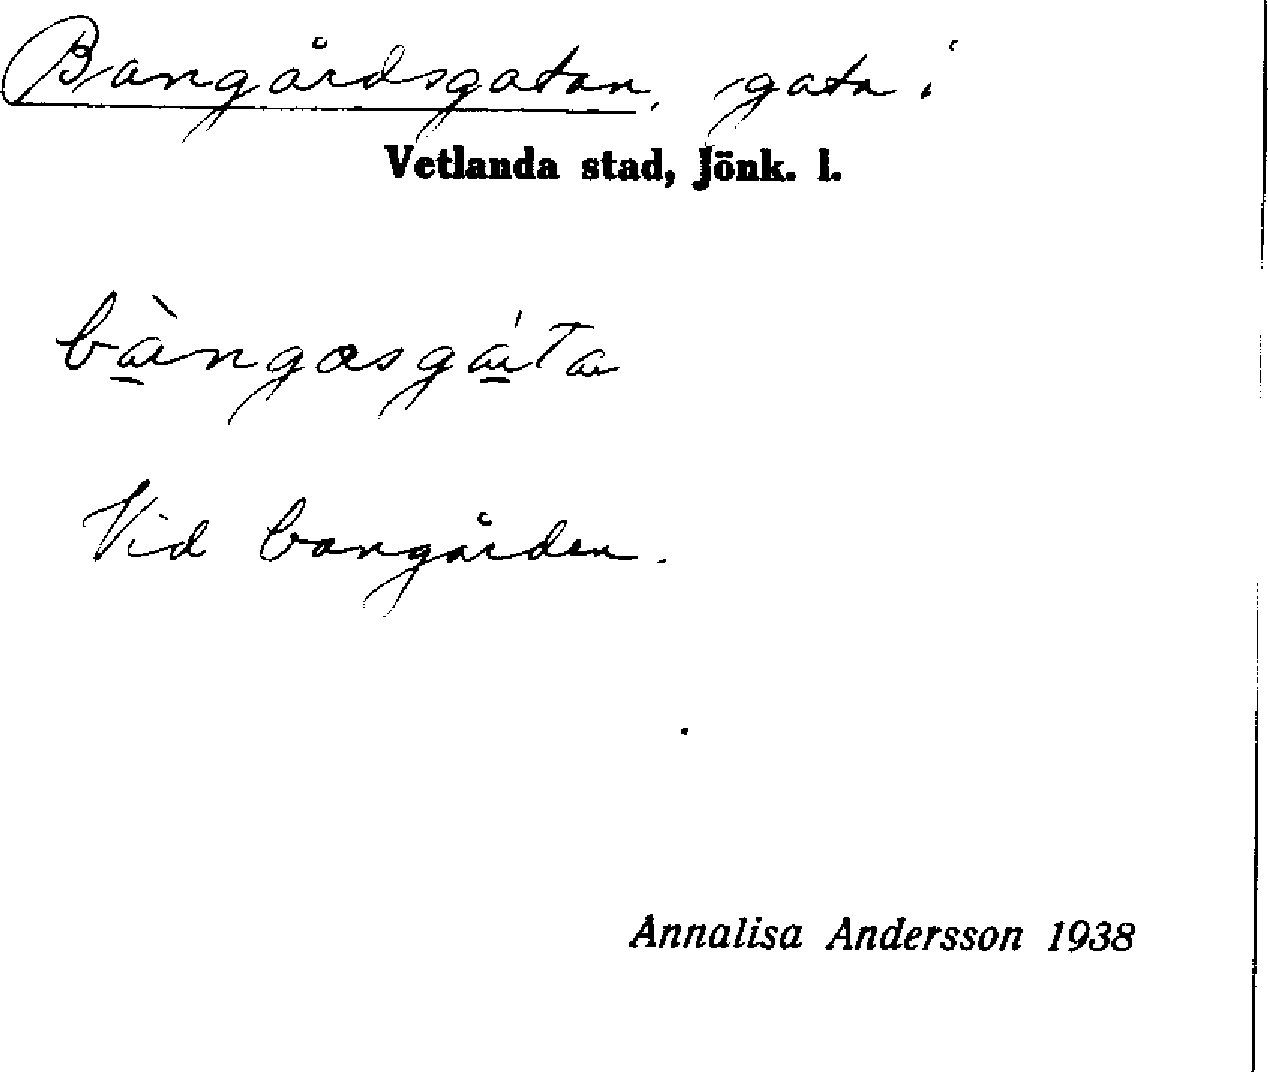 Bangårdsgatan, gata i
Vetlanda stad, Jönk. l.
bàngasgáta
Vid bangården.
Annalisa Andersson 1938